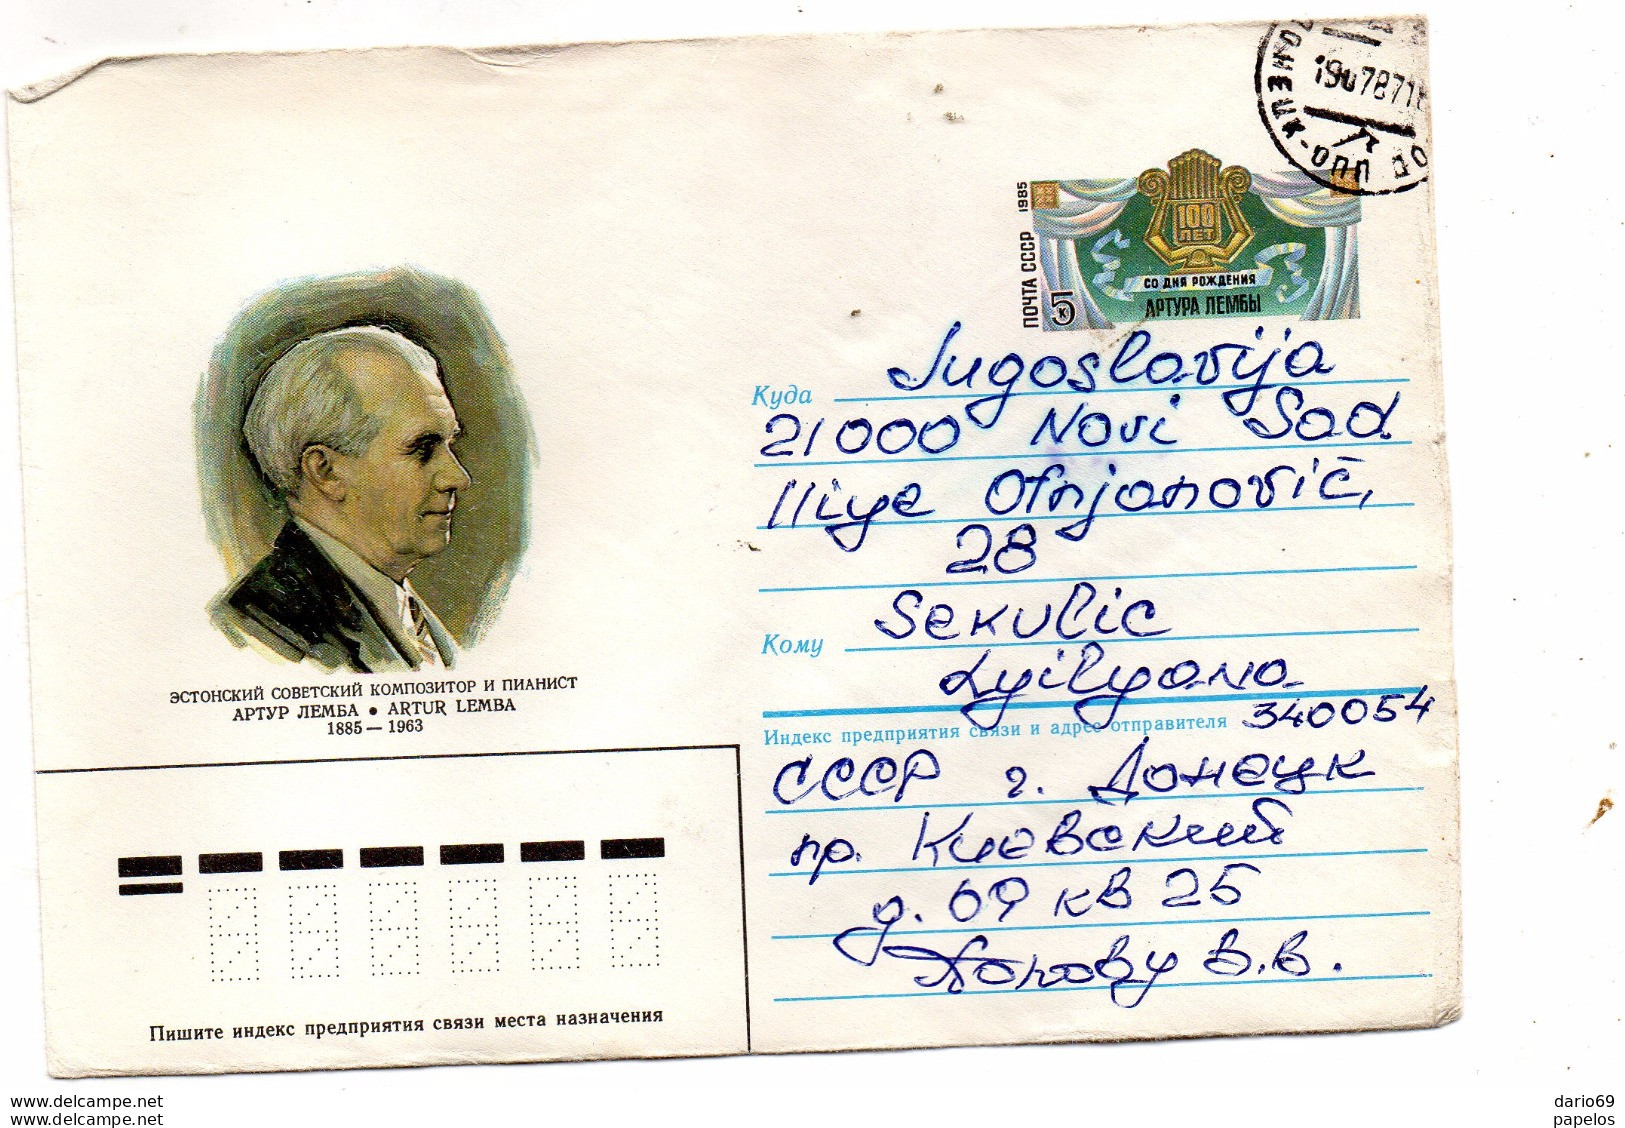 ДОНЕЦК-ОПП
ПОЧТА СССР 1985
100
ЛЕТ
СО ДНЯ РОЖДЕНИЯ
АРТУРА ЛЕМБЫ
5 к
Куда Jugoslavija
21000 Novi Sad
28
Кому Sekulic
Lyilyana
Индекс предприятия связи и адрес отправителя 340054
СССР г. Донецк
пр. Киевский
д. 69 кв 25
В.В.
ЭСТОНСКИЙ СОВЕТСКИЙ КОМПОЗИТОР И ПИАНИСТ
АРТУР ЛЕМБА • ARTUR LEMBA
1885 — 1963
Пишите индекс предприятия связи места назначения
www.delcampe.net
www.delcampe.net
dario69
papelos